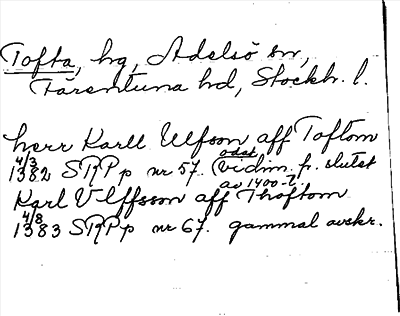 Tofta, hg, Adelsö sn,
Färentuna hd, Stockh. l.
herr Karll Ulfson aff Toftom
4/3 1382 SRPp nr 57. (odat. vidim. fr. slutet av 1400-t.)
Karl Vlffsson aff Thoftom
4/8 1383 SRPp nr 67. gammal avskr.